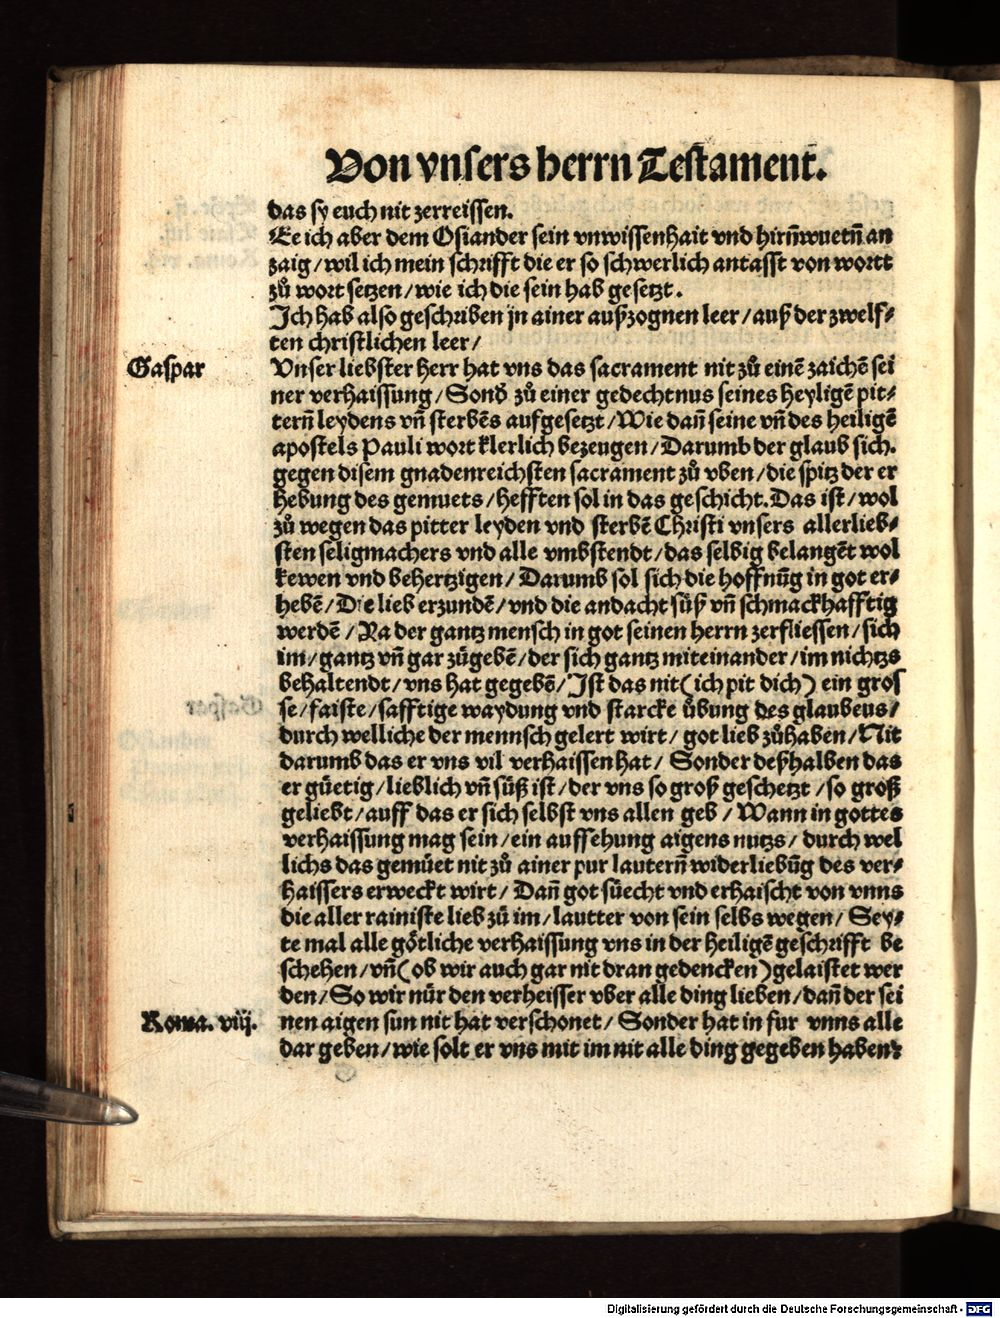 Von vnsers herrn Testament.
das sy euch nit zerreissen.
Ee ich aber dem Osiander sein vnwissenhait vnd hirn̄wuetn̄ an
zaig/wil ich mein schrifft die er so schwerlich antasst von wortt
zů wort setzen/wie ich die sein hab gesetzt.
Ich hab also geschriben jn ainer außzognen leer/auß der zwelf⸗
ten christlichen leer/
Gaspar
Vnser liebster herr hat vns das sacrament nit zů einē zaichē sei
ner verhaissung/Sonđ zů einer gedechtnus seines heyligē pit⸗
tern̄ leydens vn̄ sterbēs aufgesetzt/Wie dan̄ seine vn̄ des heiligē
apostels Pauli wort klerlich bezeugen/Darumb der glaub sich.
gegen disem gnadenreichsten sacrament zů vben/die spitz der er
hebung des gemuets/hefften sol in das geschicht.Das ist/wol
zů wegen das pitter leyden vnd sterbē Christi vnsers allerlieb⸗
sten seligmachers vnd alle vmbstendt/das selbig belangēt wol
kewen vnd behertzigen/Darumb sol sich die hoffnūg in got er⸗
hebē/Die lieb erzundē/vnd die andacht süß vn̄ schmackhafftig
werdē/Ja der gantz mensch in got seinen herrn zerfliessen/sich
im/gantz vn̄ gar zůgebē/der sich gantz miteinander/im nichtzs
behaltendt/vns hat gegebē/Ist das nit(ich pit dich) ein gros
se/faiste/safftige waydung vnd starcke ůbung des glaubens/
durch welliche der mennsch gelert wirt/got lieb zůhaben/Nit
darumb das er vns vil verhaissen hat/Sonder deßhalben das
er güetig/lieblich vn̄ süß ist/der vns so groß geschetzt/so groß
geliebt/auff das er sich selbst vns allen geb/Wann in gottes
verhaissung mag sein/ein auffsehung aigens nutzs/durch wel
lichs das gemüet nit zů ainer pur lautern̄ widerliebūg des ver⸗
haissers erweckt wirt/Dan̄ got süecht vnd erhaischt von vnns
die aller rainiste lieb zů im/lautter von sein selbs wegen/Sey⸗
te mal alle götliche verhaissung vns in der heiligē geschrifft be
schehen/vn̄(ob wir auch gar nit dran gedencken)gelaistet wer
den/So wir nür den verheisser vber alle ding lieben/dan̄ der sei
Roma. viij.
nen aigen sun nit hat verschonet/Sonder hat in fur vnns alle
dar geben/wie solt er vns mit im nit alle ding gegeben haben?
Digitalisierung gefördert durch die Deutsche Forschungsgemeinschaft - DFG